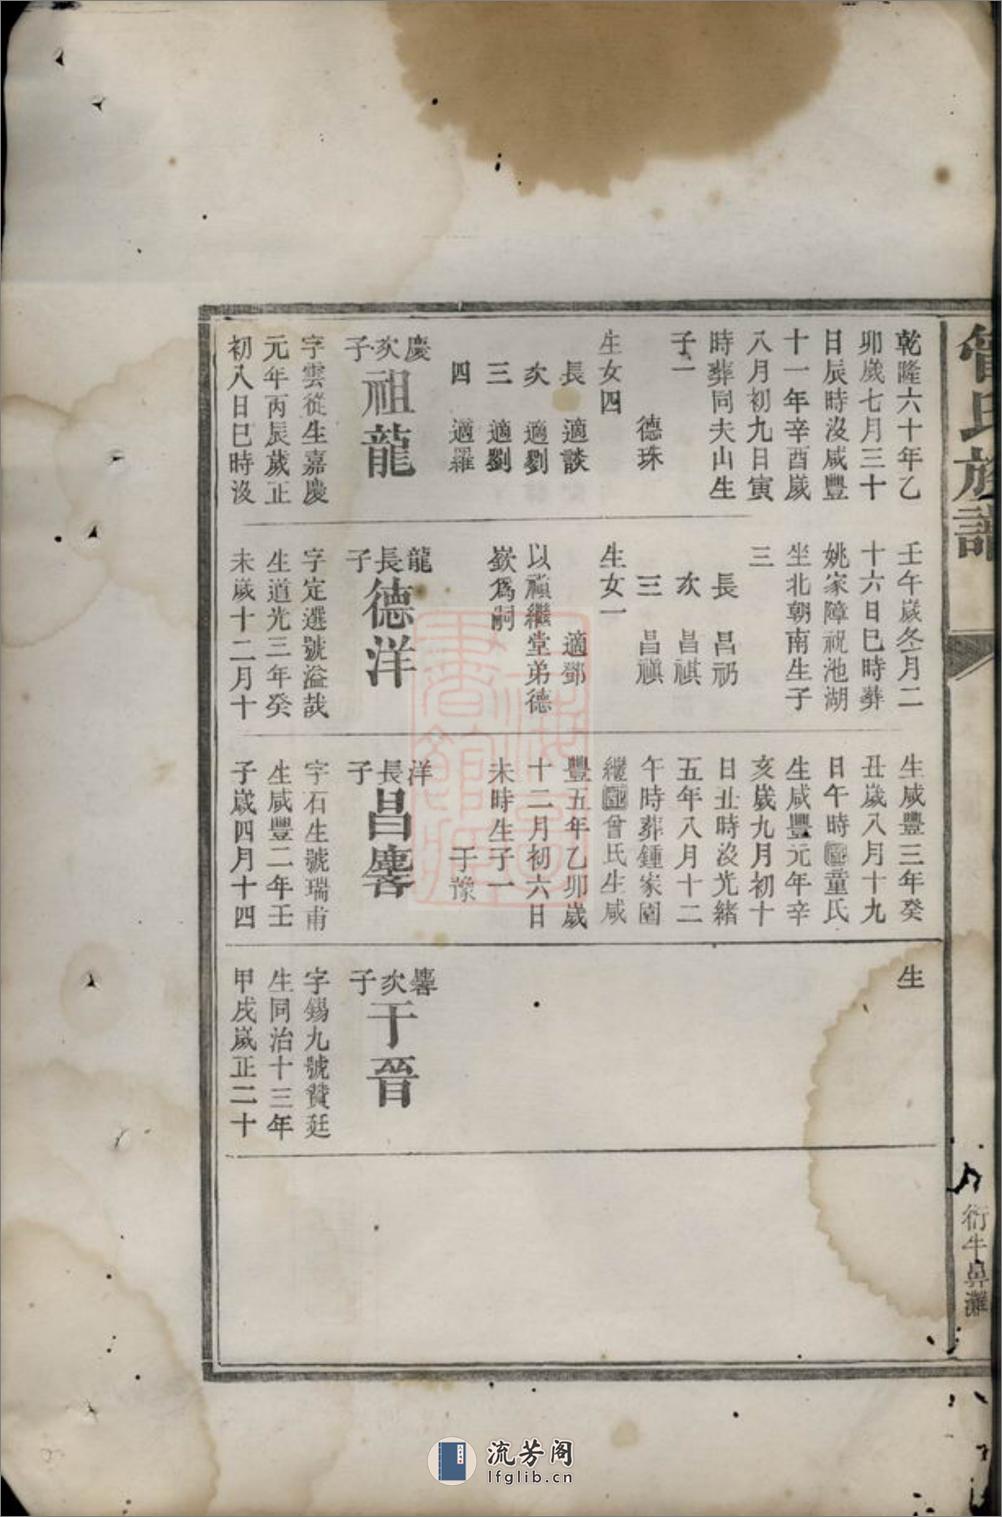 氏族譜
衍牛鼻灘
乾隆六十年乙
卯歲七月三十
日辰時沒咸豐
十一年辛酉歲
八月初九日寅
時葬同夫山生
子一
德珠
生女四
長 適談
次 適劉
三 適劉
四 適羅
慶次子
祖龍
字雲從生嘉慶
元年丙辰歲正
初八日巳時沒
壬午歲冬月二
十六日巳時葬
姚家障祝池湖
坐北朝南生子
三
長 昌礽
次 昌祺
三 昌禛
生女一
適鄧
以禛繼堂弟德
嶔爲嗣
龍長子
德洋
字定選號溢哉
生道光三年癸
未歲十二月十
生咸豐三年癸
丑歲八月十九
日午時配童氏
生咸豐元年辛
亥歲九月初十
日丑時沒光緒
五年八月十二
午時葬鍾家園
繼配曾氏生咸
豐五年乙卯歲
十二月初六日
未時生子一
于豫
洋長子
昌麐
字石生號瑞甫
生咸豐二年壬
子歲四月十四
生
麐次子
于晉
字錫九號贊廷
生同治十三年
甲戌歲正二十
流芳阁
lfglib.cn